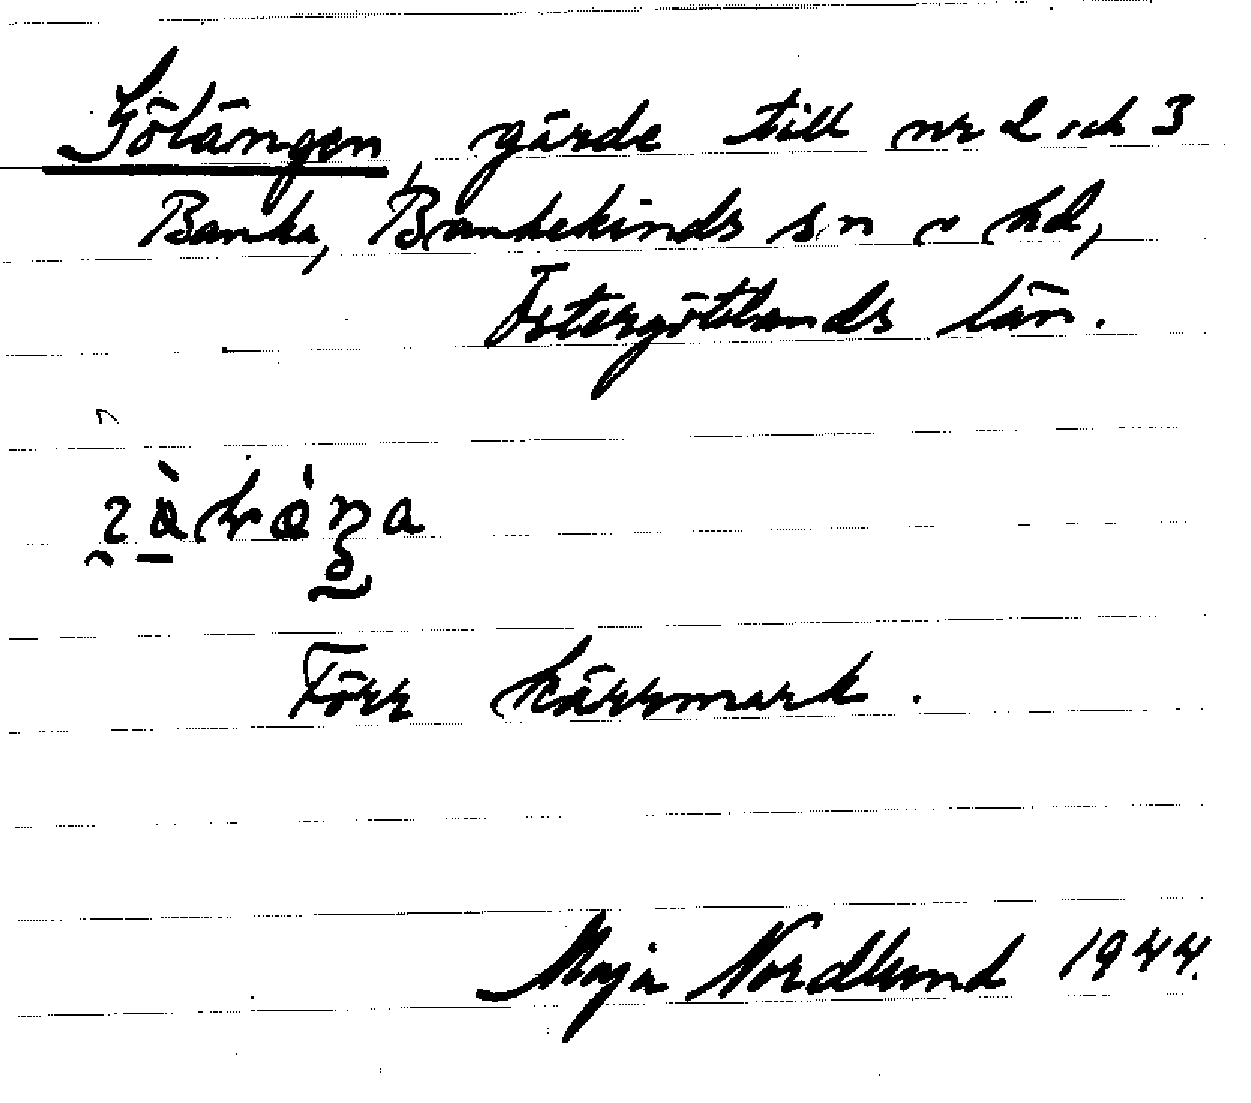 Gölängen, gärde till nr 2 och 3
Banka, Bankekinds sn o hd,
Östergötlands län.
Förr kärrmark.
Maja Nordlund 1944.